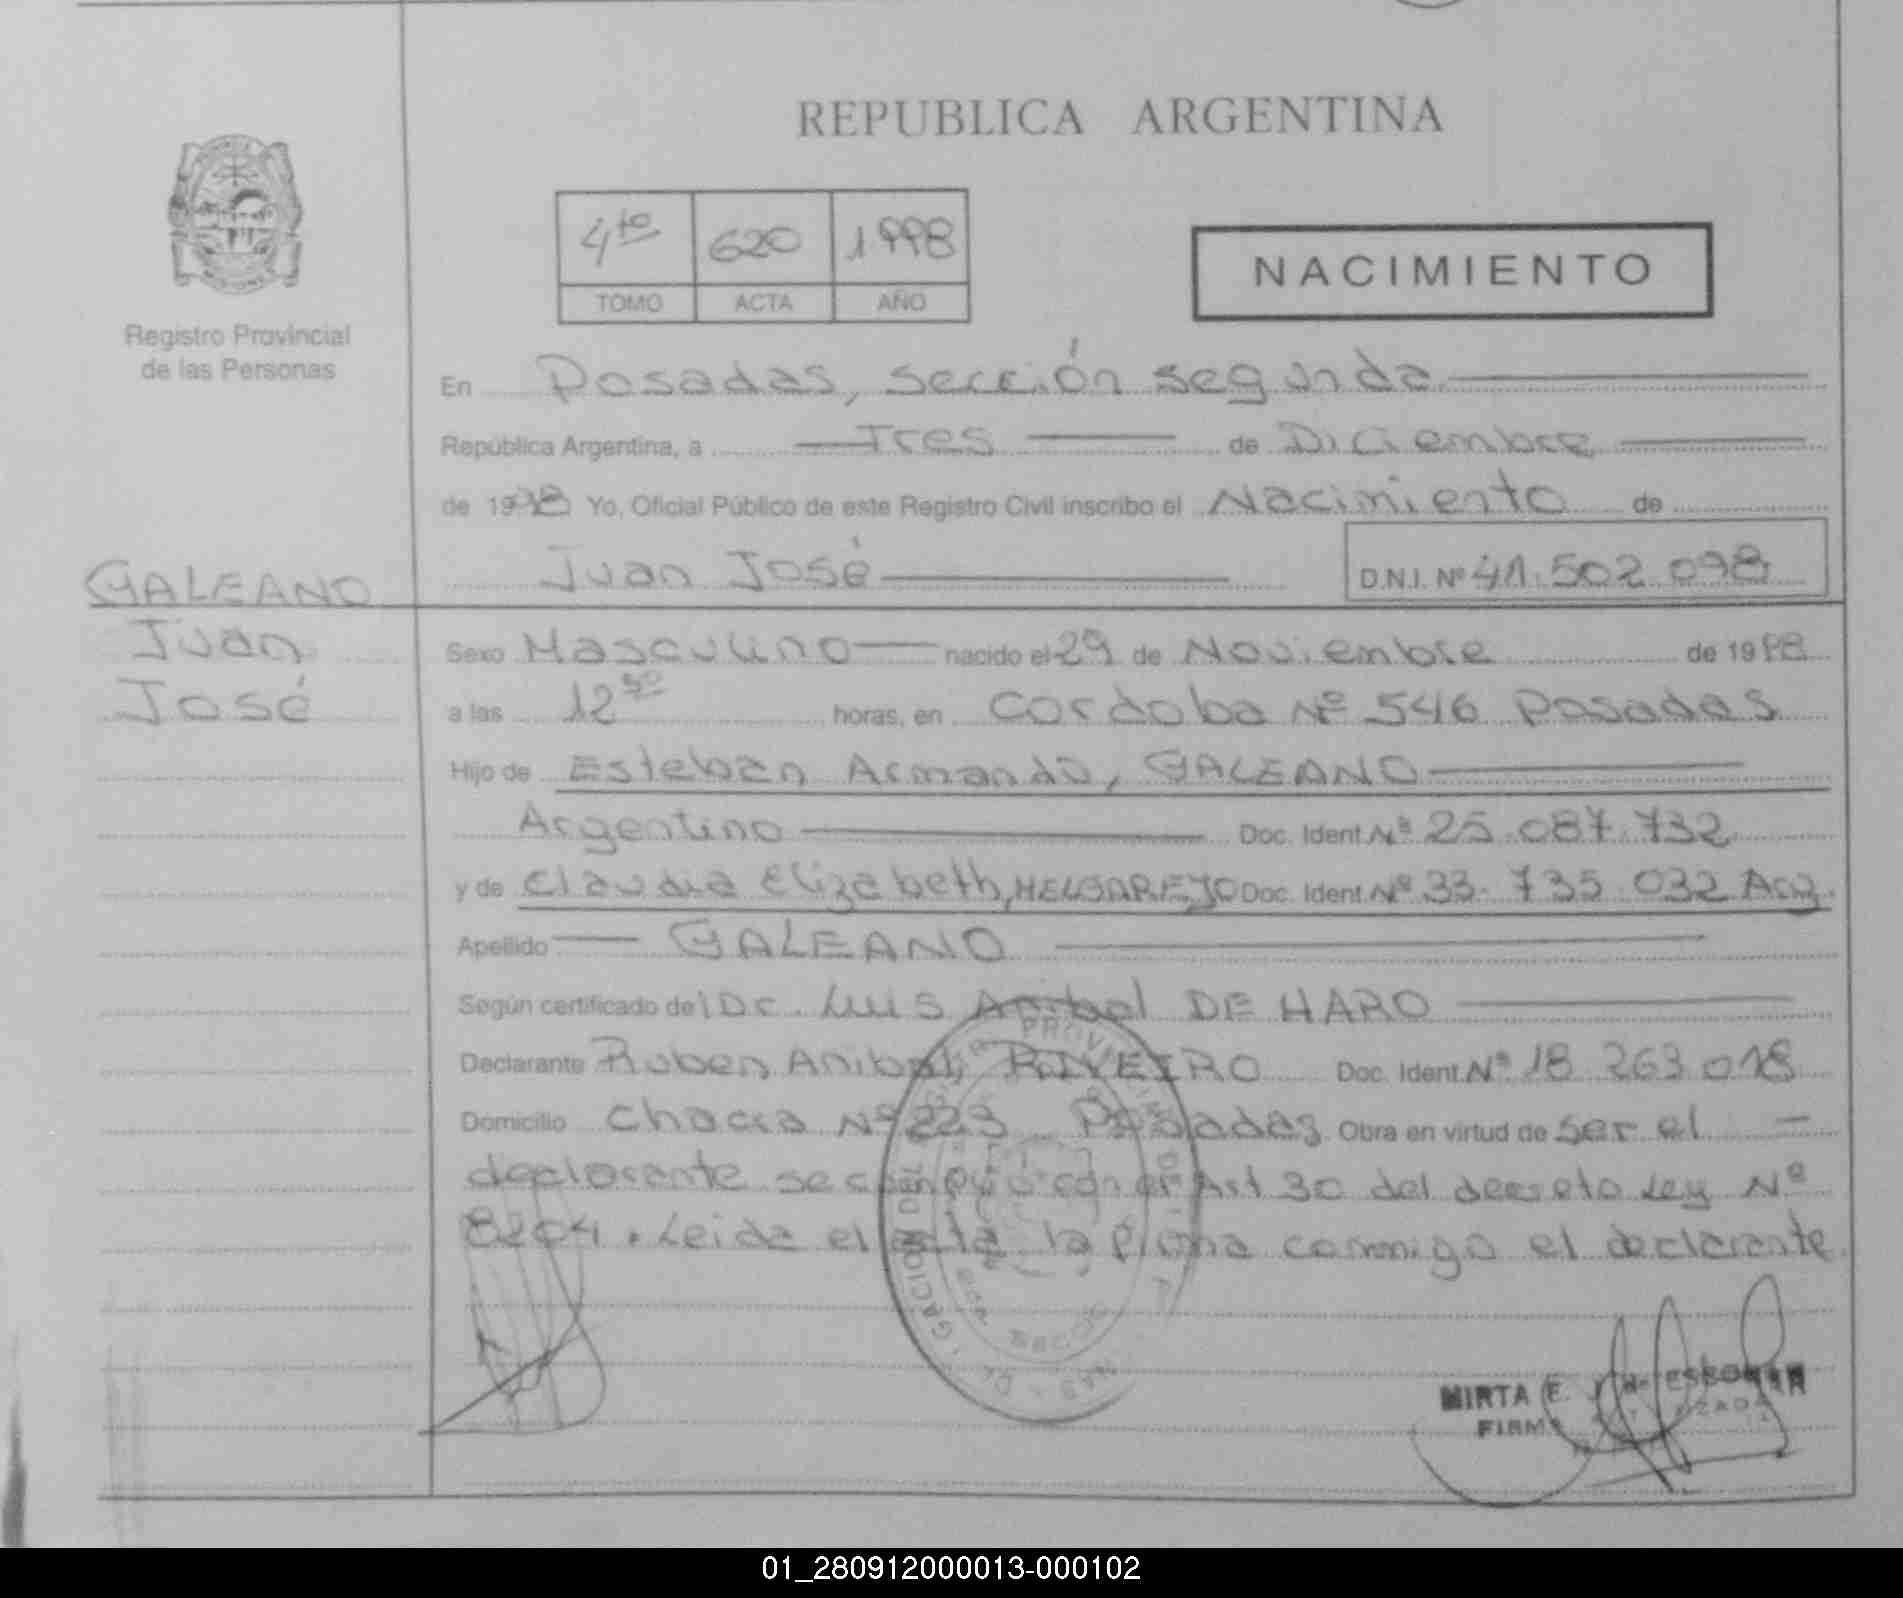 REPUBLICA ARGENTINA
4to 620 1998
TOMO ACTA AÑO
NACIMIENTO
Registro Provincial
de las Personas
En Posadas, sección segunda
República Argentina, a Tres de Diciembre
de 1998 Yo, Oficial Público de este Registro Civil inscribo el Nacimiento de
Juan José D.N.I. Nº 41.502.098
GALEANO
Juan
José
Sexo Masculino nacido el 29 de Noviembre de 1998
a las 12 30 horas, en Cordoba Nº 546 Posadas
Hijo de Esteban Armando, GALEANO
Argentino Doc. Ident. Nº 25.087.732
y de Claudia Elizabeth, MELGAREJO Doc. Ident. Nº 33.735.032 Arg.
Apellido GALEANO
Según certificado del Dr. Luis Anibal DE HARO
Declarante Ruben Anibal, RIVEIRO Doc. Ident. Nº 18.263.018
Domicilio Chacra Nº 223 Posadas Obra en virtud de ser el
declarante se cumplió con el Art 30 del decreto Ley Nº
8204. Leida el acta la firma conmigo el declarante
MIRTA E. de ESCOBAR
01_280912000013-000102